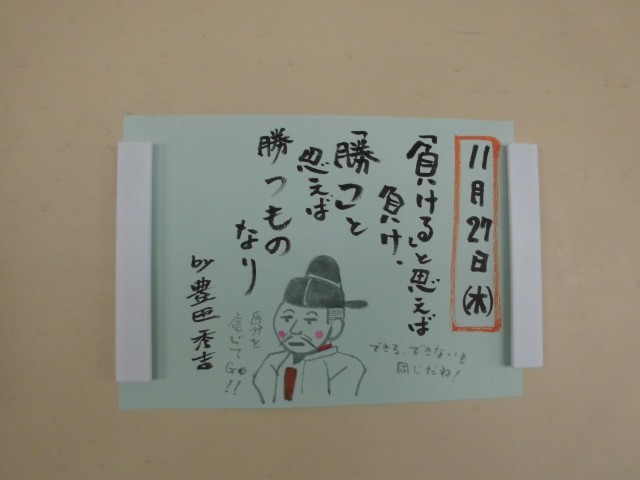 11月27日(木)
「負ける」と思えば
負け、
「勝つ」と
思えば
勝つもの
なり
by 豊臣秀吉
できる、できないも
同じだね!
自分を
信じて
GO!!